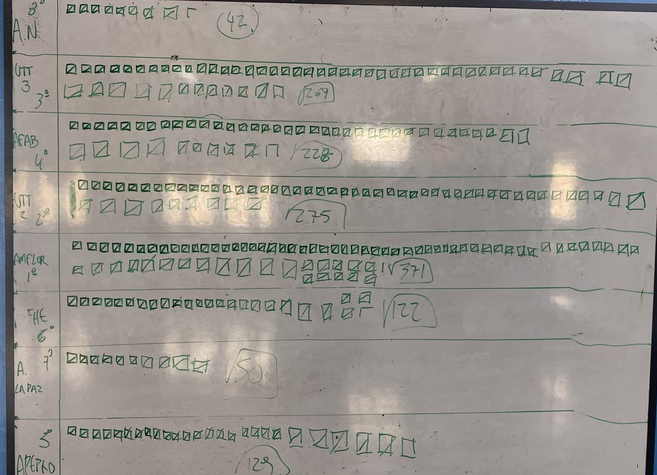 8°
A.N.
42
UTT
3
3°
269
AFAB
4°
228
UTT
2 2°
275
AMFLOR
1°
371
THE
6°
122
7°
A.
LAPAZ
50
5°
129